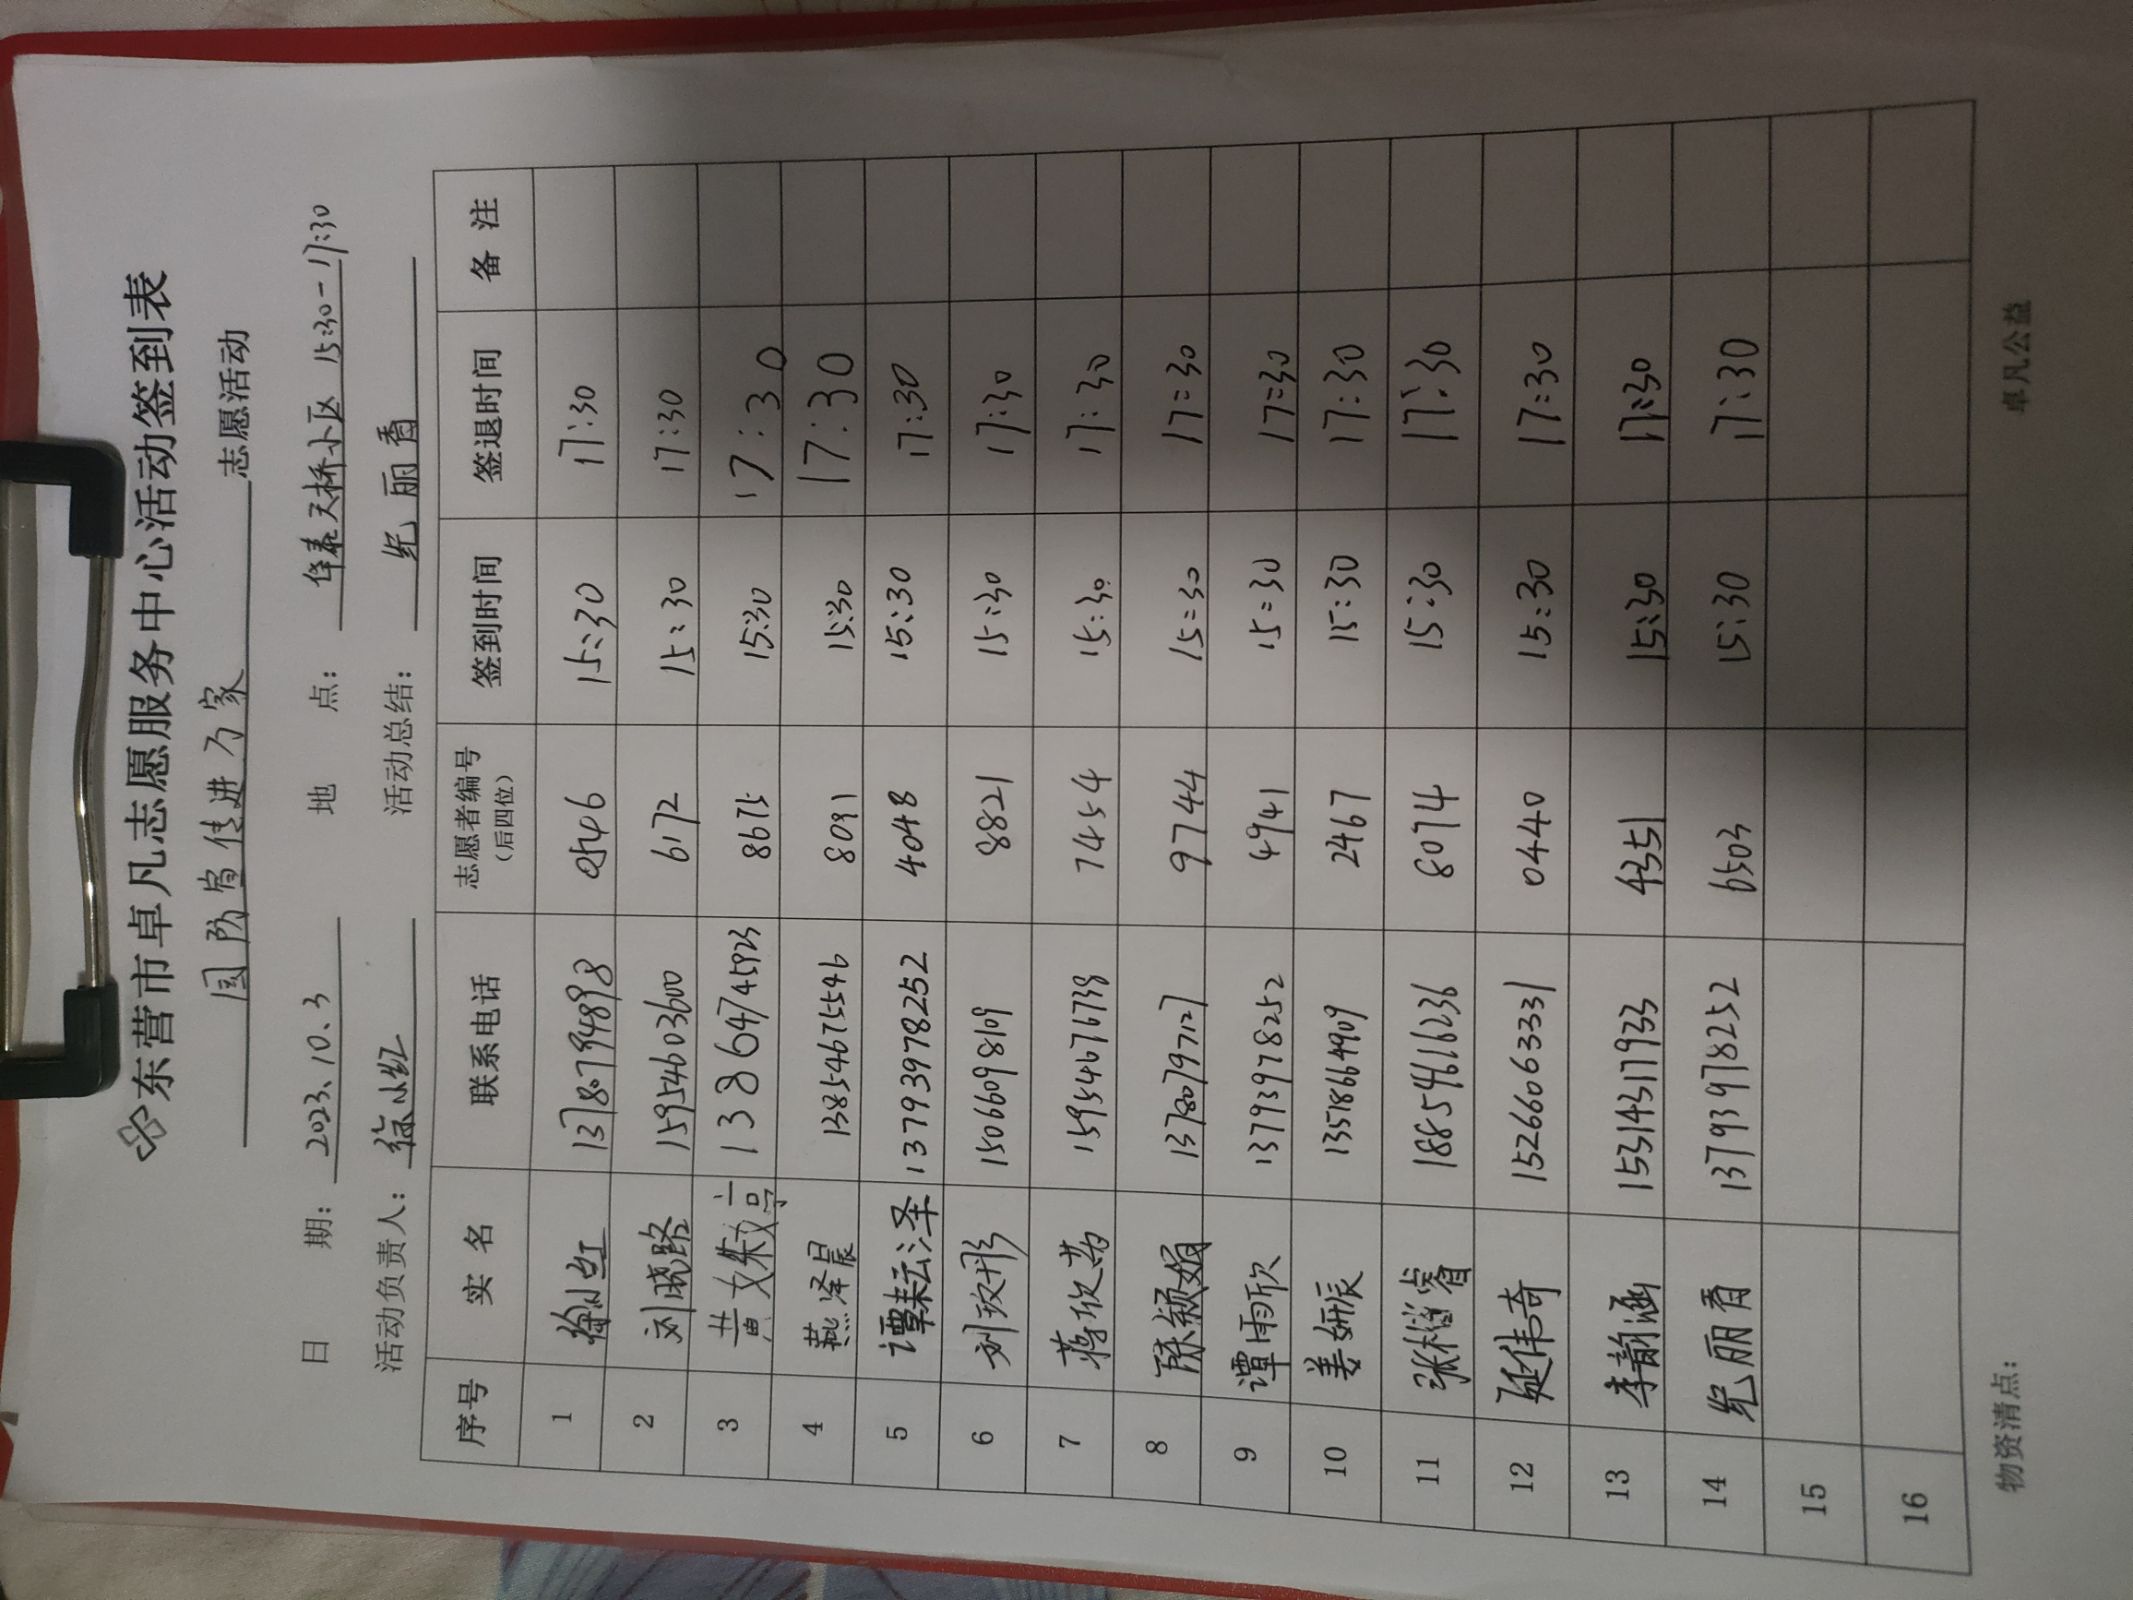 东营市卓凡志愿服务中心活动签到表
国防宣传进万家 志愿活动
日 期: 2023.10.3 地 点: 天桥小区 15:30-17:30
活动负责人: 徐小红 活动总结: 纪丽香
序号 实 名 联系电话 志愿者编号(后四位) 签到时间 签退时间 备 注
1 徐小红 13780794898 15:30 17:30
2 刘晓路 15954603600 6172 15:30 17:30
3 黄文姝 13864745923 8675 15:30 17:30
4 燕泽晨 13854675546 8091 15:30 17:30
5 谭耘泽 13793978252 4048 15:30 17:30
6 刘玫彤 15066098109 8821 15:30 17:30
7 蒋欣芮 15954676738 7454 15:30 17:30
8 陈颖娟 13780797127 9744 15:30 17:30
9 谭雨欣 13793978252 4941 15:30 17:30
10 姜妍辰 13518664909 2467 15:30 17:30
11 张 睿 18854616236 8074 15:30 17:30
12 延伟奇 15266063331 0440 15:30 17:30
13 李韵涵 15314317933 4351 15:30 17:30
14 纪丽香 13793978252 6503 15:30 17:30
15
16
物资清点: 卓凡公益